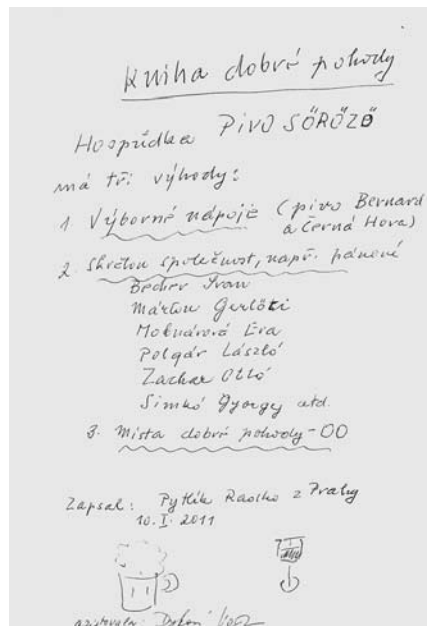 Kniha dobré pohody
Hospůdka PIVO SÖRÖZŐ
má tři výhody:
1. Výborné nápoje (pivo Bernard
a Černá Hora)
2. společnost, např. pánové
Becher Ivan
Márton
Molnárová Eva
Polgár László
Zachar Ottó
Simkó György atd.
3. Místa dobré pohody - OO
Zapsal: Pytlík Radko z Prahy
10. I. 2011